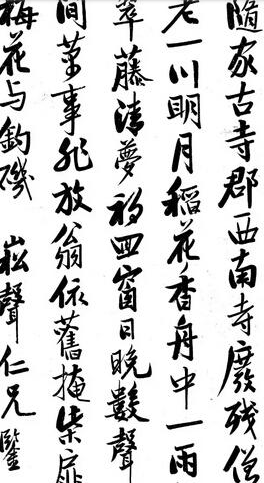 隨家古寺郡西南寺廢殘僧
老一川明月稻花香舟中一雨
翠藤清夢初回窗日晚數聲
間萬事非放翁依舊掩柴扉
梅花与釣磯 崧聲仁兄鑒